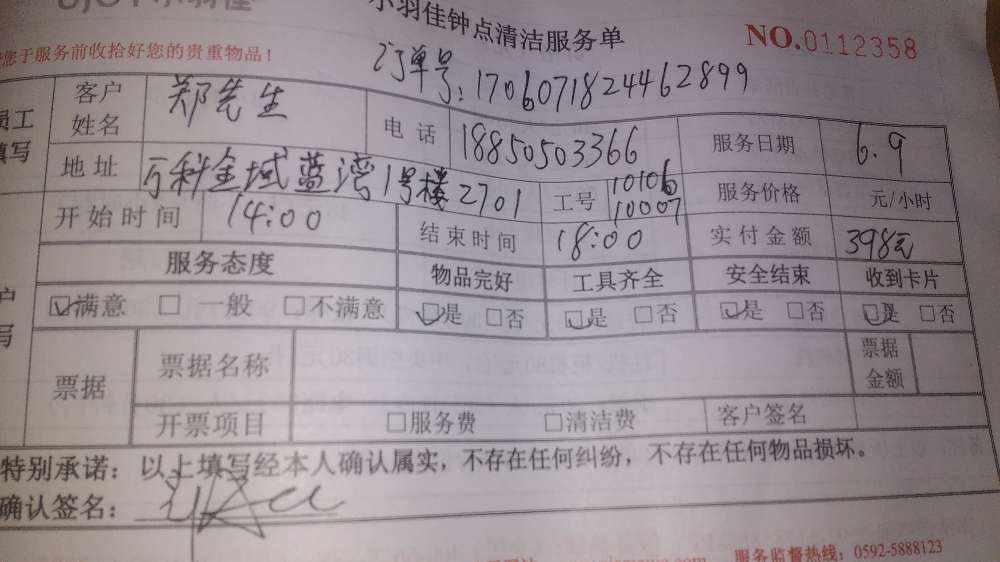 小羽佳
小羽佳钟点清洁服务单
NO.0112358
您于服务前收拾好您的贵重物品！
订单号：1706071824462899
员工填写
客户姓名 郑先生 电话 18850503366 服务日期 6.9
地址 万科金域蓝湾1号楼2701 工号 10106 10007 服务价格 元/小时
开始时间 14:00 结束时间 18:00 实付金额 398元
服务态度 物品完好 工具齐全 安全结束 收到卡片
☑满意 □一般 □不满意 ☑是 □否 ☑是 □否 ☑是 □否 ☑是 □否
票据 票据名称 票据金额
开票项目 □服务费 □清洁费 客户签名
特别承诺：以上填写经本人确认属实，不存在任何纠纷，不存在任何物品损坏。
确认签名：
服务监督热线：0592-5888123